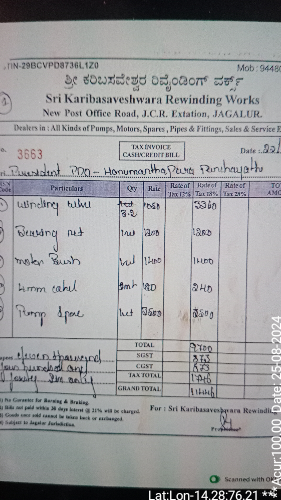 TIN-29BCVPD8736L1Z0 Mob : 94480
ಶ್ರೀ ಕರಿಬಸವೇಶ್ವರ ರಿವೈಂಡಿಂಗ್ ವರ್ಕ್ಸ್
Sri Karibasaveshwara Rewinding Works
New Post Office Road, J.C.R. Extation, JAGALUR.
Dealers in : All Kinds of Pumps, Motors, Spares , Pipes & Fittings, Sales & Service
No. 3663 TAX INVOICE Date :
CASH/CREDIT BILL
President PDO - Hanumanthapura Panchayathi
Particulars Qty Rate Rate of Tax 12% Rate of Tax 18% Rate of Tax 28%
winding 3.2 1050 3360
Bearing set 1 set 1200 1200
motor Bush 1 set 1400 1400
4mm cabel 240
Pump Spare set 3500 3500
TOTAL 9700
SGST 873
CGST 873
TAX TOTAL 1746
GRAND TOTAL 11446
No Guarantee for Burning & Braking.
Bills not paid within 30 days interest @ 21% will be charged.
Goods once sold cannot be taken back or exchanged.
Subject to Jagalur Jurisdiction.
For : Sri Karibasaveshwara Rewindin
Proprietor
Scanned with
Lat:Lon-14.28:76.21
Acur:100.00 Date:25-08-2024